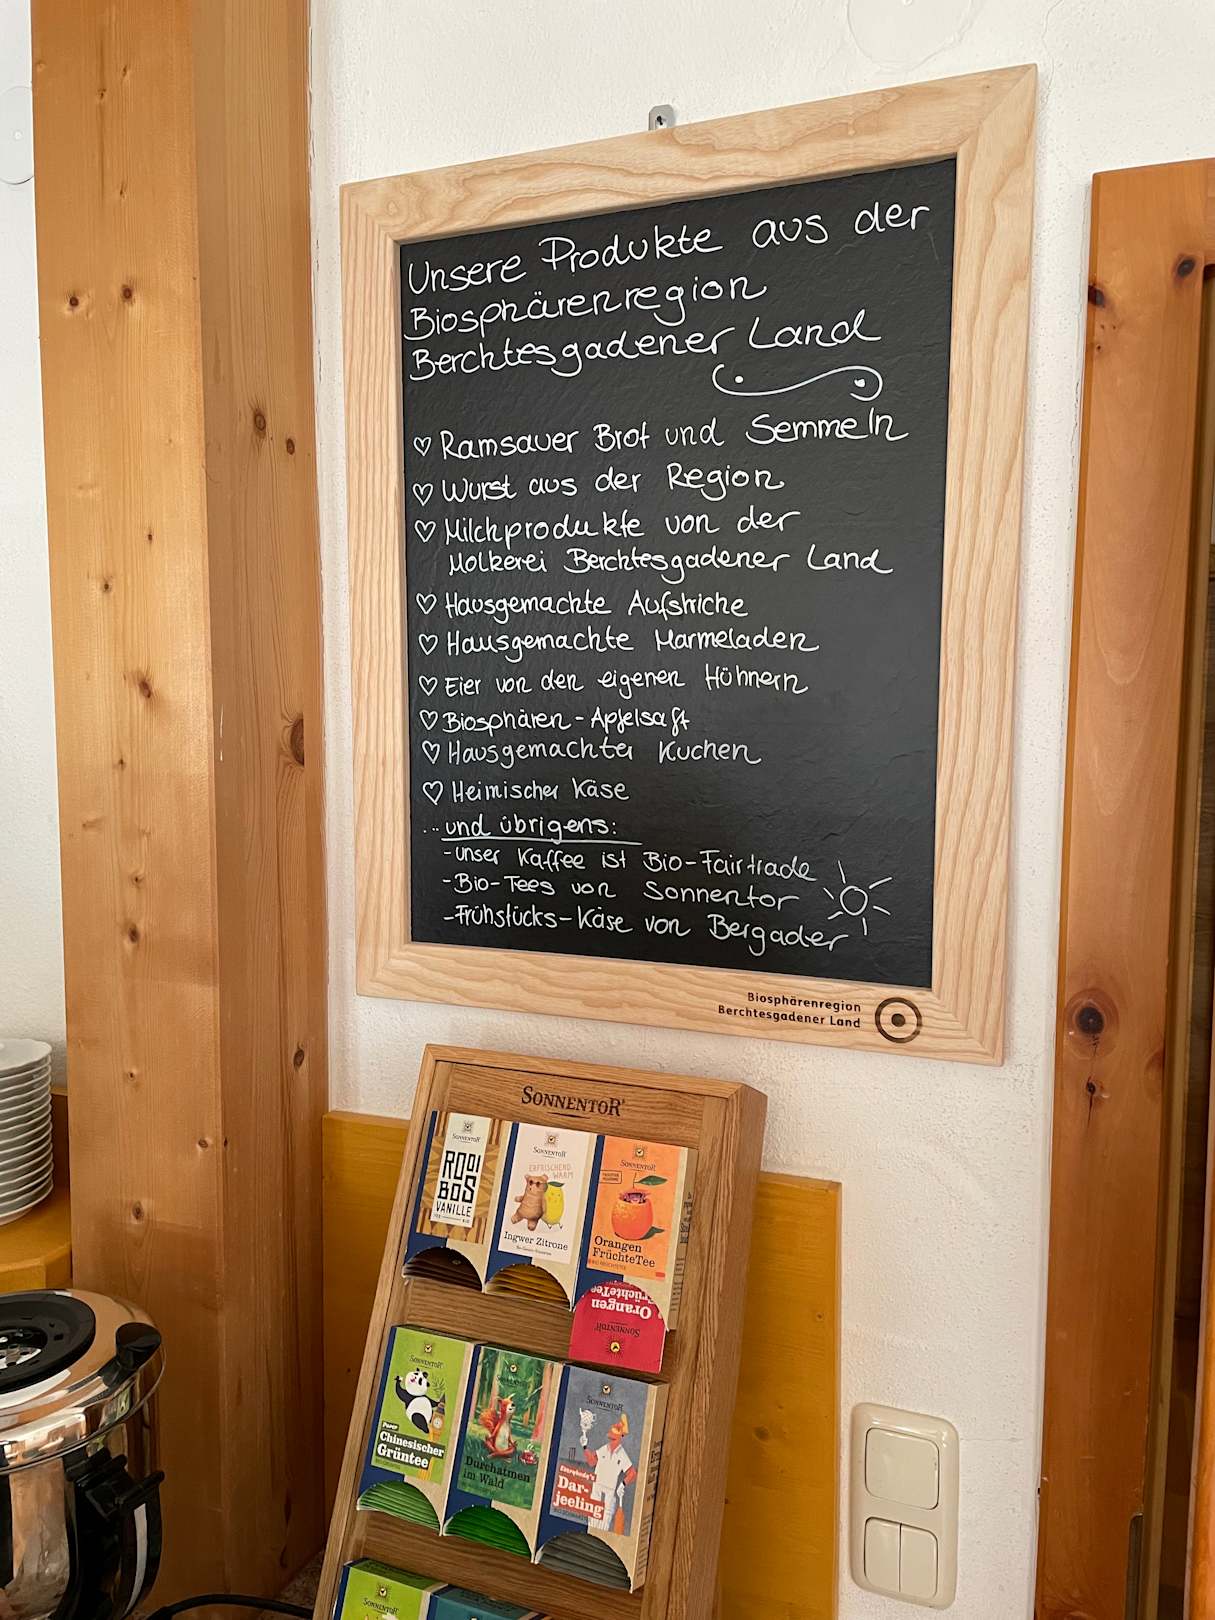 Unsere Produkte aus der
Biosphärenregion
Berchtesgadener Land
Ramsauer Brot und Semmeln
Wurst aus der Region
Milchprodukte von der
Molkerei Berchtesgadener Land
Hausgemachte Aufstriche
Hausgemachte Marmeladen
Eier von den eigenen Hühnern
Biosphären-Apfelsaft
Hausgemachter Kuchen
Heimischer Käse
... und übrigens:
-unser Kaffee ist Bio-Fairtrade
-Bio-Tees von Sonnentor
-Frühstücks-Käse von Bergader
Biosphärenregion
Berchtesgadener Land
SONNENTOR
SONNENTOR
ROOI
BOS
VANILLE
SONNENTOR
ERFRISCHEND
WARM
Ingwer Zitrone
SONNENTOR
Orangen
FrüchteTee
FrüchteTee
Orangen
SONNENTOR
SONNENTOR
Chinesischer
Grüntee
SONNENTOR
Durchatmen
im Wald
SONNENTOR
Everybody's
Dar-
jeeling
SONNENTOR